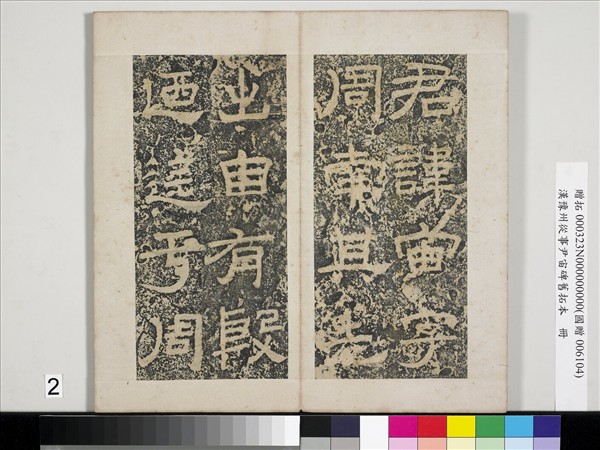 君諱宙字
周南其先
出自有殷
迺迄于周
贈拓 000323N000000000(國贈 006104)
漢豫州從事尹宙碑舊拓本 冊
2